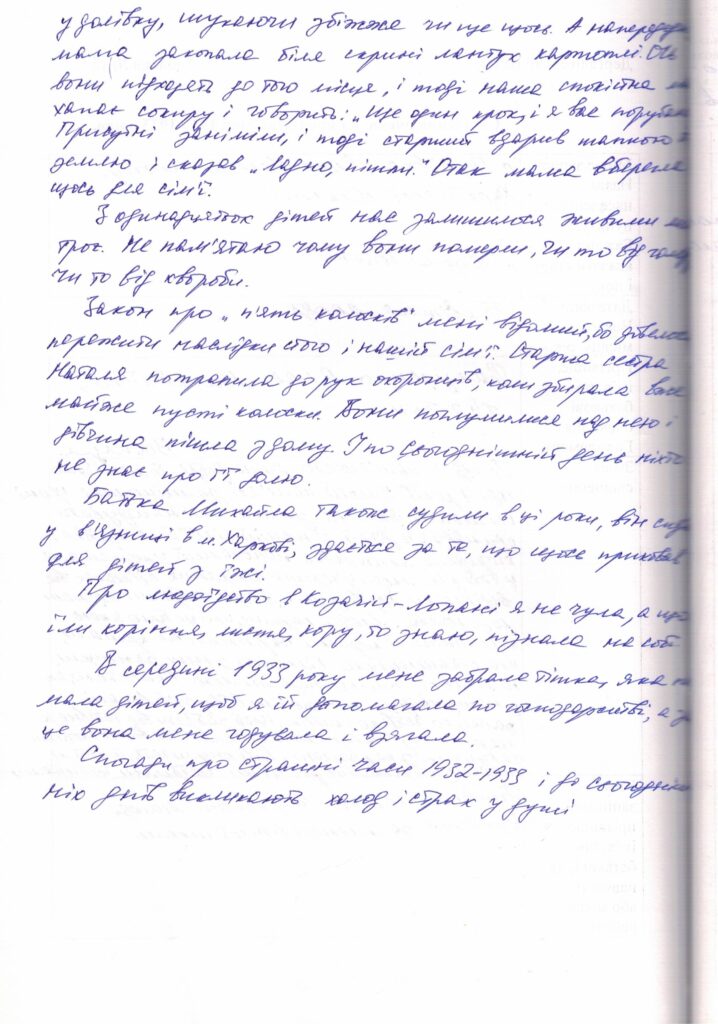 у долівку, шукаючи збіжжя чи ще щось. А напередодні
мама закопала біля скрині лантух картоплі. Ось
вони підходять до того місця, і тоді наша спокійна
хапає сокиру і говорить: „Ще один крок, і я вас порубаю
Присутні заніміли, і тоді старший вдарив шапкою
землю і сказав „Ладно, пішли." Отак мама вберегла
щось для сім'ї.
З одинадцяток дітей нас залишилося живими
троє. Не пам'ятаю чому вони померли, чи то від голоду
чи то від хвороби.
Закон про „п'ять колосків" мені відомий, бо довелося
пережити наслідки його і нашій сім'ї. Старша сестра
Наталя потрапила до рук охоронців, коли збирала вже
майже пусті колоски. Вони поглумилися над нею і
дівчина пішла з дому. І по сьогоднішній день ніхто
не знає про її долю.
Батька Михайла також судили в ці роки, він сидів
у в'язниці в м. Харкові, здається за те, що щось приховав
для дітей з їжі.
Про людоїдство в Козачій-Лопані я не чула, а що
їли коріння, листя, кору, то знаю, пізнала на собі
В середині 1933 року мене забрала тітка, яка не
мала дітей, щоб я їй допомагала по господарстві, а за
це вона мене годувала і вдягала.
Спогади про страшні часи 1932-1933 і до сьогодніш
ніх днів викликають холод і страх у душі